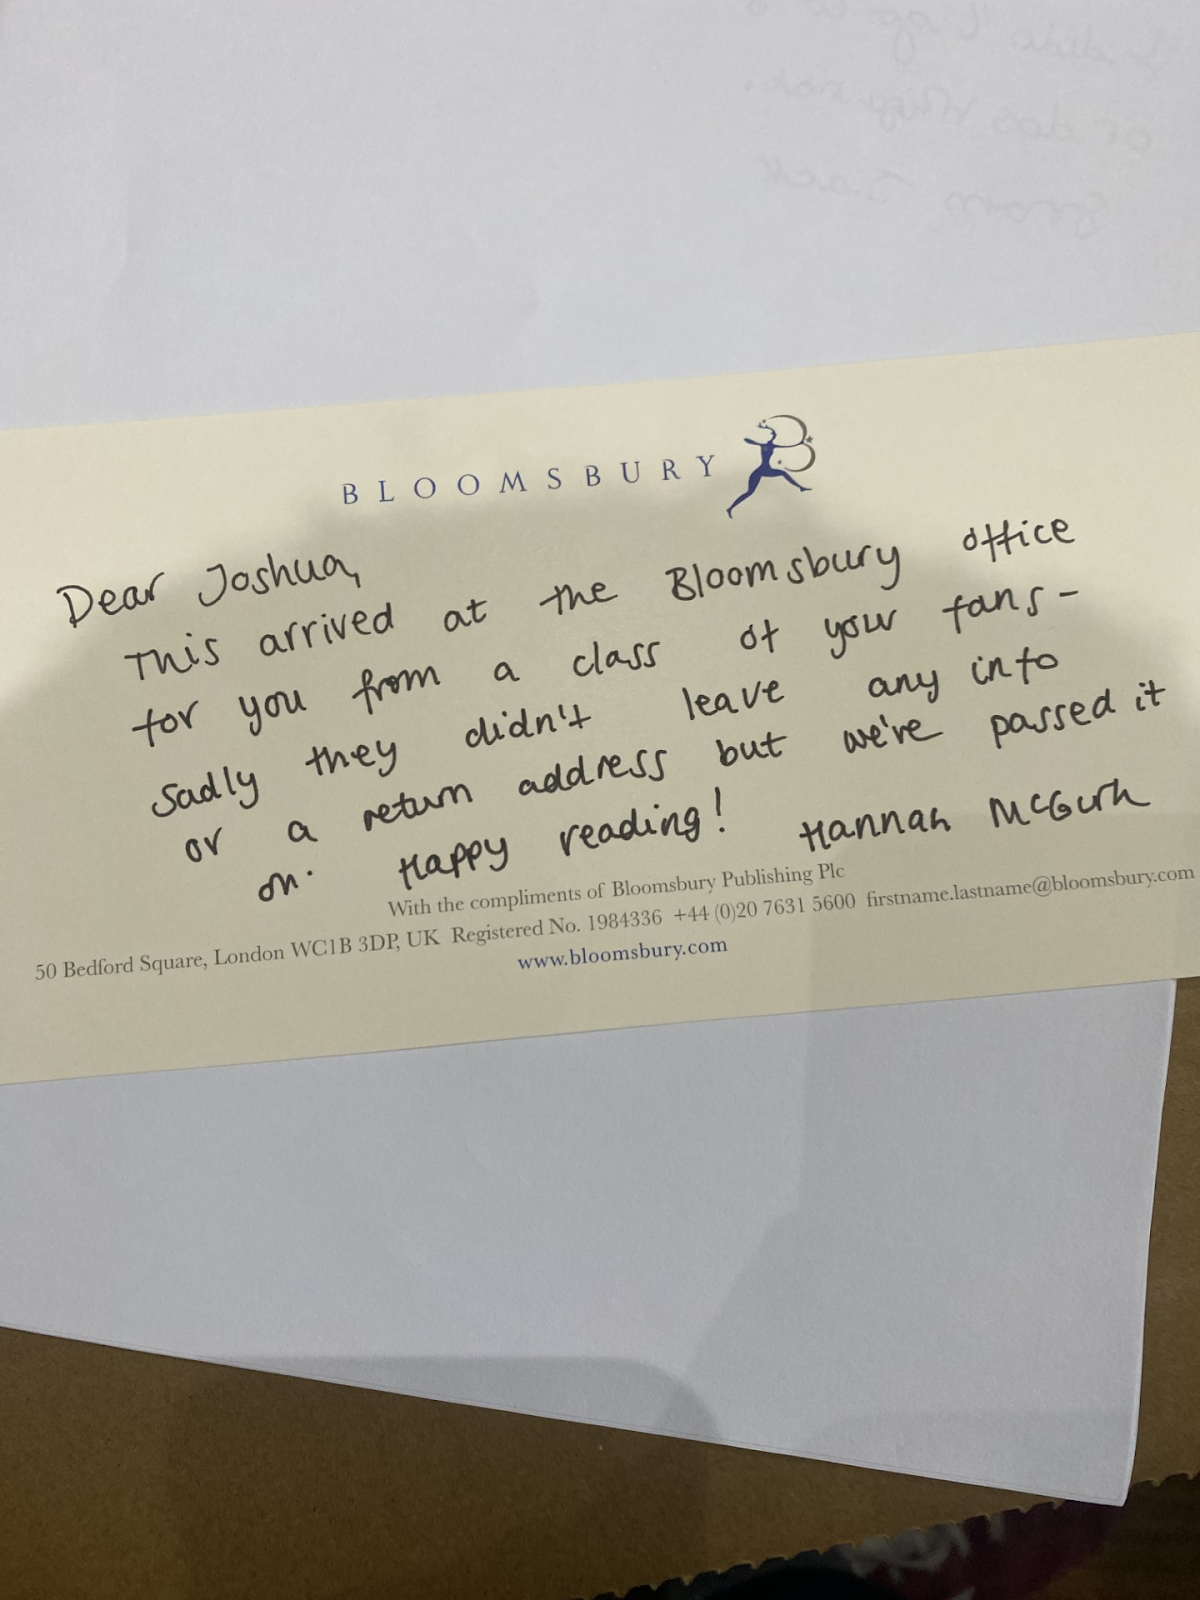 BLOOMSBURY
Dear Joshua,
This arrived at the Bloomsbury office
for you from a class of your fans -
sadly they didn't leave any info
or a return address but we've passed it
on. Happy reading! Hannah McGurk
With the compliments of Bloomsbury Publishing Plc
50 Bedford Square, London WC1B 3DP, UK Registered No. 1984336 +44 (0)20 7631 5600 firstname.lastname@bloomsbury.com
www.bloomsbury.com